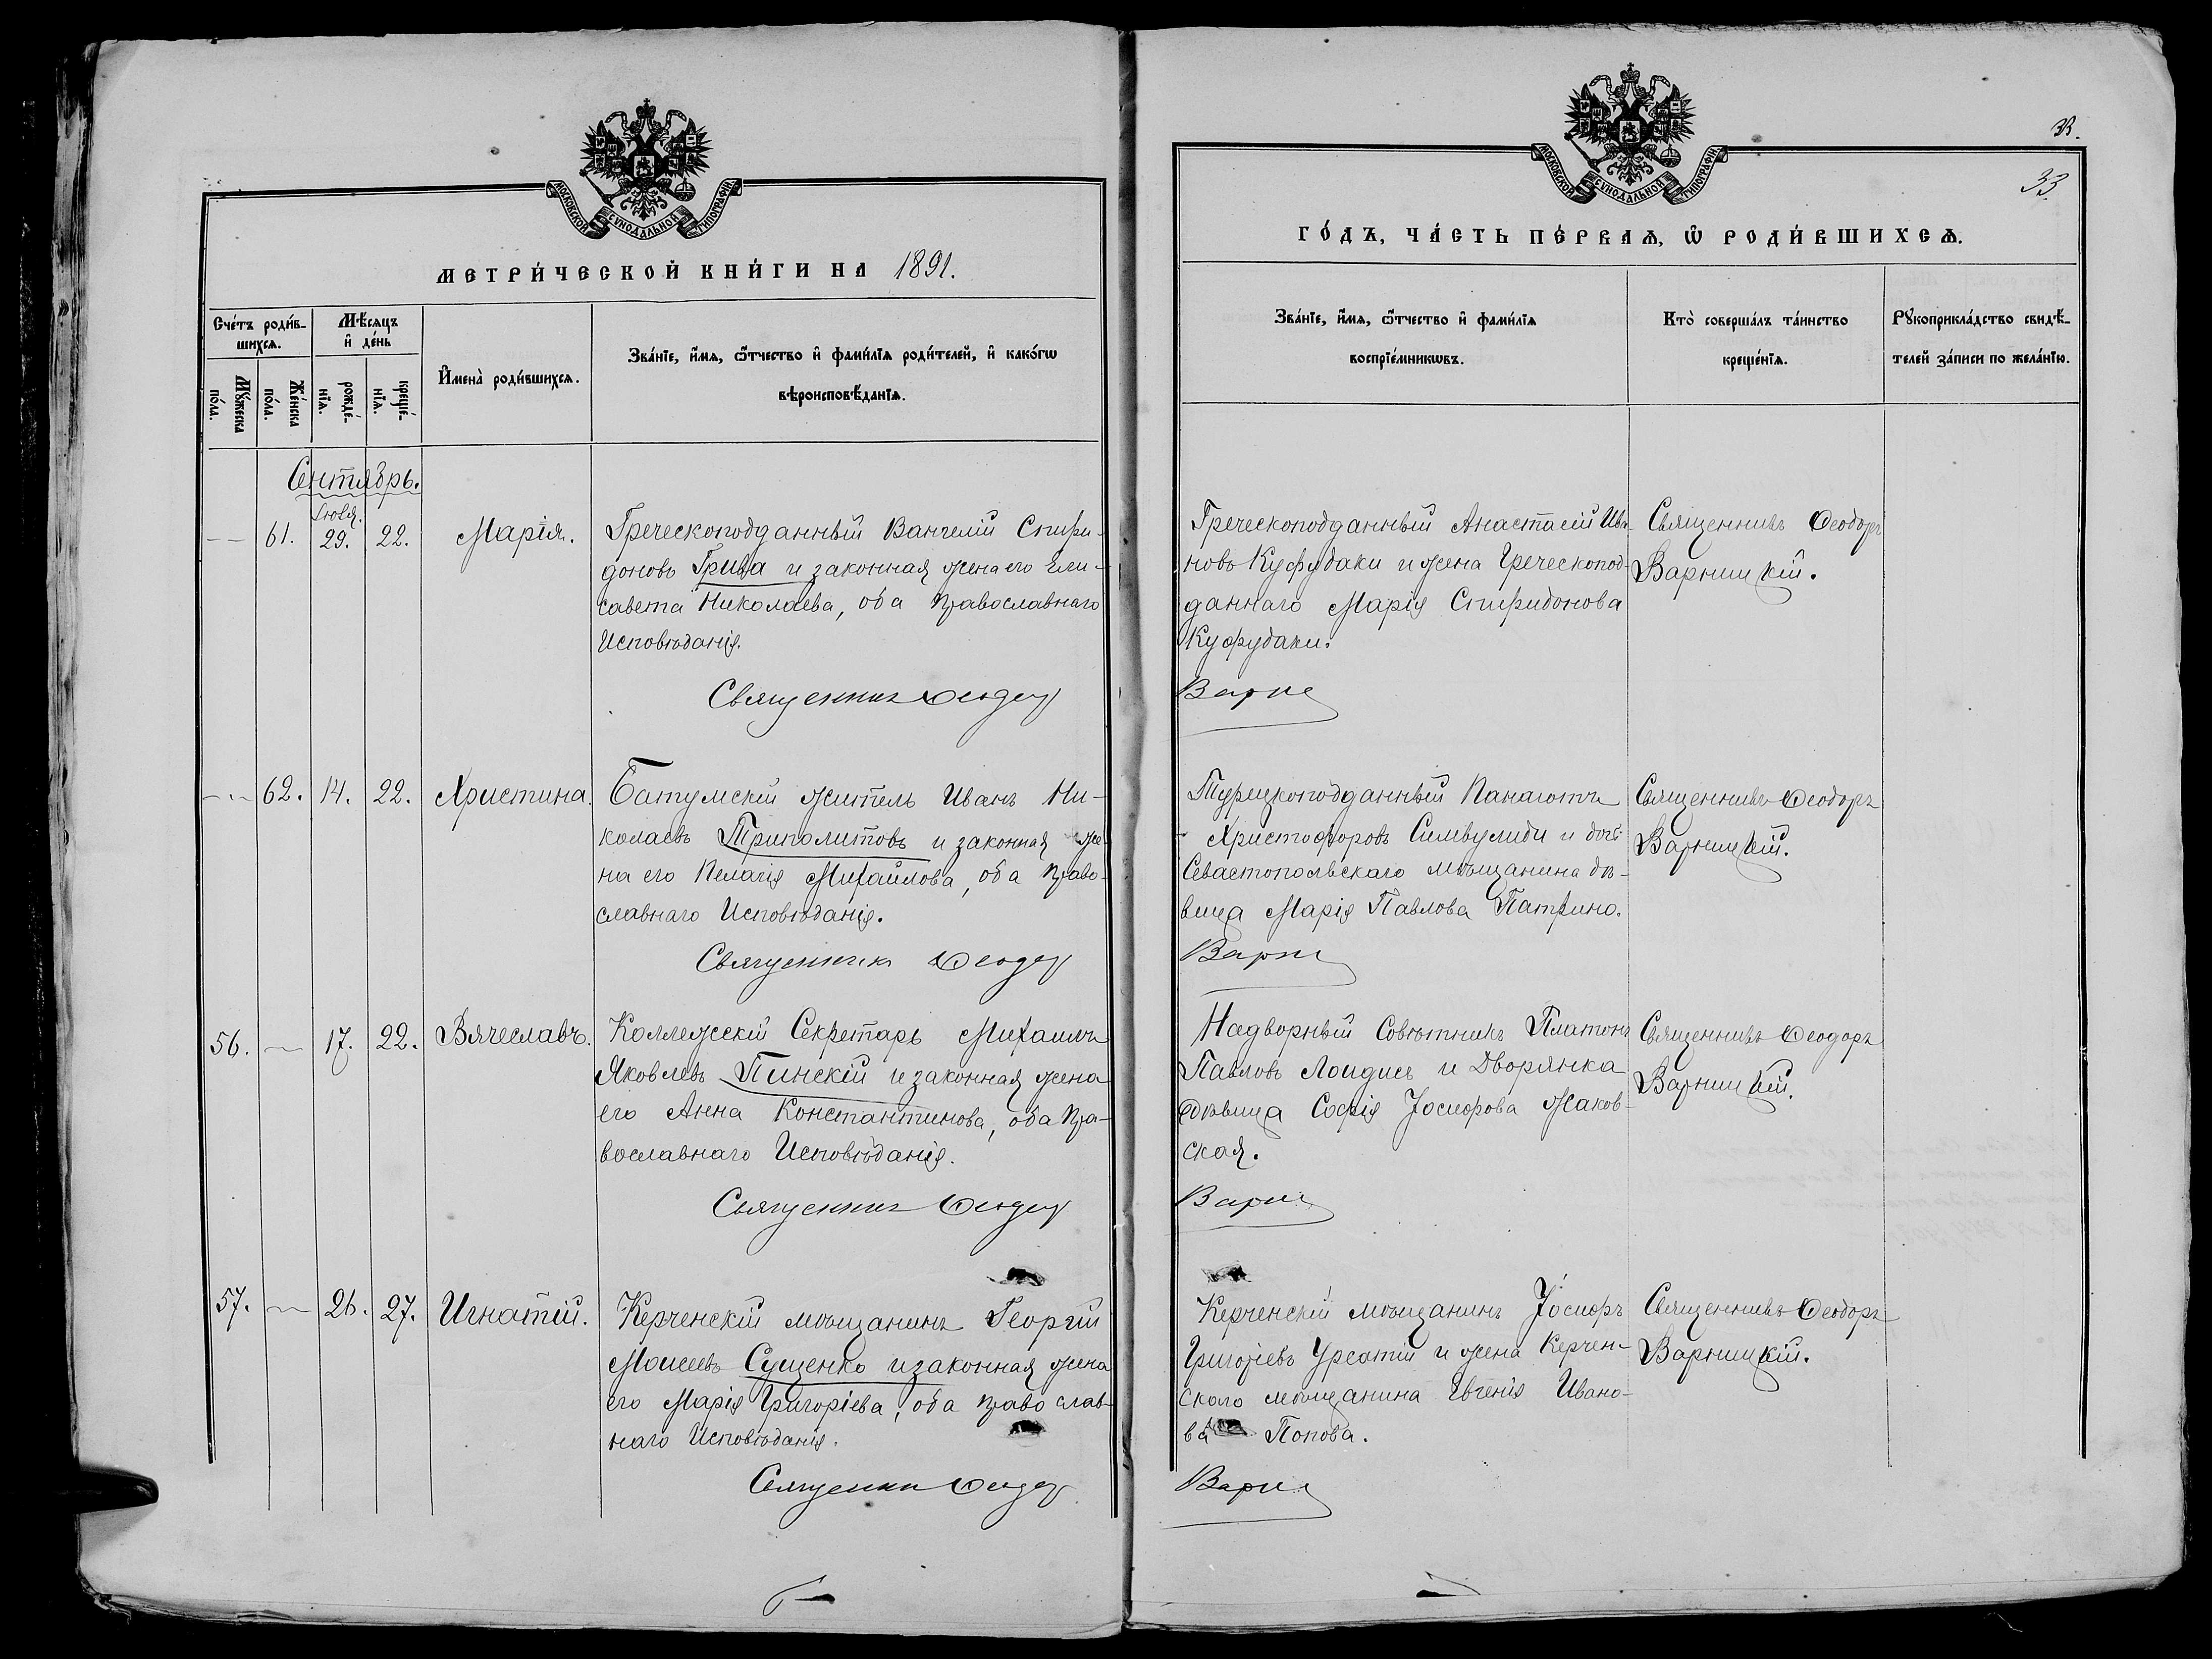 МОСКОВСКОЙ СѴНОДАЛЬНОЙ ТИПОГРАФІИ.
МЕТРИ́ЧЕСКОЙ КНИ́ГИ НА 1891.
Сче́тъ роди́в-
шихсѧ.
Мѣ́сяцъ
и҆ де́нь
Мꙋ́жеска
по́ла.
Же́нска
по́ла.
рожде́-
нїѧ.
креще́-
нїѧ.
И҆мена̀ роди́вшихсѧ.
Зва́нїе, и҆́мѧ, ѻ҆́тчество и҆ фами́лїѧ роди́телей, и҆ како́гѡ
вѣроисповѣ́данїѧ.
Сентябрь.
Іюля.
— 61. 29. 22. Марія.
Греческоподданный Вангелій Спири-
доновъ Грива и законная жена его Ели-
савета Николаева, оба православнаго
Исповѣданія.
Священникъ Ѳеодоръ
— 62. 14. 22. Христина.
Батумскій житель Иванъ Ни-
колаевъ Триполитовъ и законная же-
на его Пелагія Михайлова, оба право-
славнаго Исповѣданія.
Священникъ Ѳеодоръ
56. — 17. 22. Вячеславъ.
Коллежскій Секретарь Михаилъ
Яковлевъ Пинскій и законная жена
его Анна Константинова, оба пра-
вославнаго Исповѣданія.
Священникъ Ѳеодоръ
57. — 26. 27. Игнатій.
Керченскій мѣщанинъ Георгій
Моисеевъ Сущенко и законная жена
его Марія Григоріева, оба православ-
наго Исповѣданія.
Священникъ Ѳеодоръ
МОСКОВСКОЙ СѴНОДАЛЬНОЙ ТИПОГРАФІИ.
33.
33.
ГО́ДЪ, ЧА́СТЬ ПЕ́РВАѦ, Ѡ҆ РОДИ́ВШИХСѦ.
Зва́нїе, и҆́мѧ, ѻ҆́тчество и҆ фами́лїѧ
воспрїе́мникѡвъ.
Кто̀ соверша́лъ та́инство
креще́нїѧ.
Рꙋкоприкла́дство свидѣ́-
телей за́писи по жела́нїю.
Греческоподданный Анастасій Ива-
новъ Куфудаки и жена Греческопод-
даннаго Марія Спиридонова
Куфудаки.
Священникъ Ѳеодоръ
Варницкій.
Турецкоподданный Панаіотъ
Христофоровъ Симвулиди и дочь
Севастопольскаго мѣщанина дѣ-
вица Марія Павлова Патрино.
Священникъ Ѳеодоръ
Варницкій.
Надворный Совѣтникъ Платонъ
Павловъ Лоидисъ и Дворянка
дѣвица Софія Іосифова Жаков-
ская.
Священникъ Ѳеодоръ
Варницкій.
Керченскій мѣщанинъ Іосифъ
Григоріевъ Урсатій и жена Керчен-
скаго мѣщанина Евгенія Ивано-
ва Попова.
Священникъ Ѳеодоръ
Варницкій.